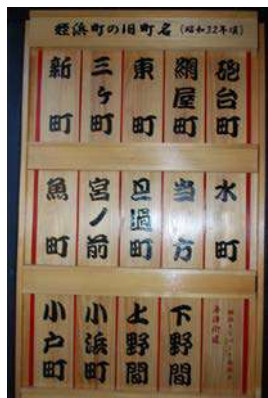 姪浜町の旧町名（昭和32年頃）
砲台町
網屋町
東町
三ヶ町
新町
水町
当方
旦過町
宮ノ前
魚町
下野間
上野間
小浜町
小戸町